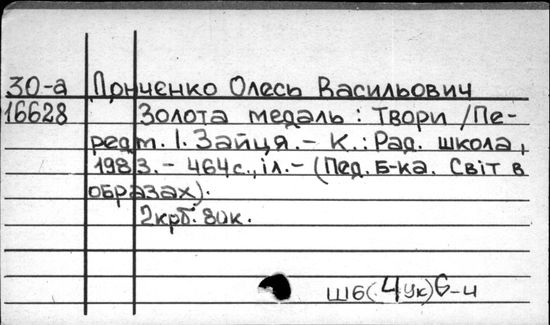 30-а Дончєнко Олесь Васильович
16628 Золота медаль : Твори /Пе-
редм. І. Зайця. – К. : Рад. школа,
1983. – 464с., іл. – (Пед. б-ка. Світ в
образах).
2крб. 80к.
Ш6(4Ук)6-4